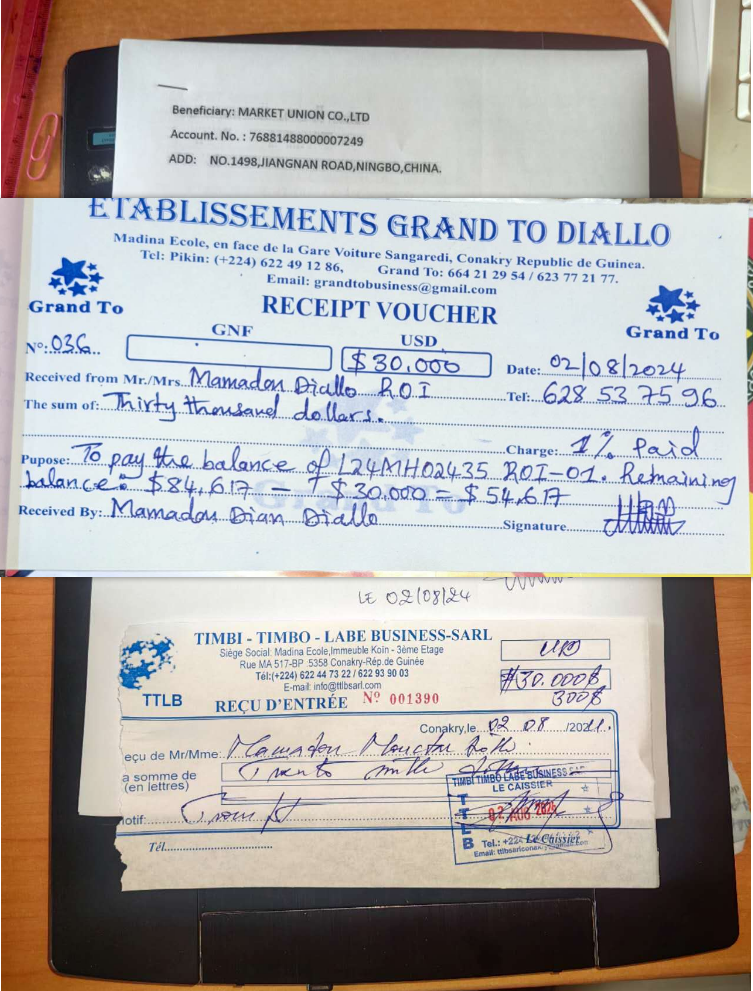 Beneficiary: MARKET UNION CO.,LTD
Account. No. : 76881488000007249
ADD: NO.1498,JIANGNAN ROAD,NINGBO,CHINA.
ETABLISSEMENTS GRAND TO DIALLO
Madina Ecole, en face de la Gare Voiture Sangaredi, Conakry Republic de Guinea.
Tel: Pikin: (+224) 622 49 12 86, Grand To: 664 21 29 54 / 623 77 21 77.
Email: grandtobusiness@gmail.com
Grand To
RECEIPT VOUCHER
Grand To
GNF
USD
Nº: 036
$30.000
Date: 02/08/2024
Received from Mr./Mrs. Mamadou Diallo ROI
Tel: 628 53 75 96
The sum of: Thirty thousand dollars.
Charge: 1% Paid
Pupose: To pay the balance of L24MH02435 ROI-01. Remaining
balance: $84,617 - $30.000 = $54,617
Received By: Mamadou Dian Diallo
Signature
LE 02/08/24
TIMBI - TIMBO - LABE BUSINESS-SARL
Siège Social: Madina Ecole,Immeuble Koïn - 3ème Etage
Rue MA 517-BP 5358 Conakry-Rép.de Guinée
Tél:(+224) 622 44 73 22 / 622 93 90 03
E-mail: info@ttlbsarl.com
TTLB
REÇU D'ENTRÉE Nº 001390
$30.000$
300$
Conakry,le 02 08 /202
eçu de Mr/Mme: Mamadou
a somme de
(en lettres)
mille
TIMBI TIMBO LABE BUSINESS SARL
LE CAISSIER
TTLB
02 AOU
otif:
Le Caissier
Tel.: +224
Tél.